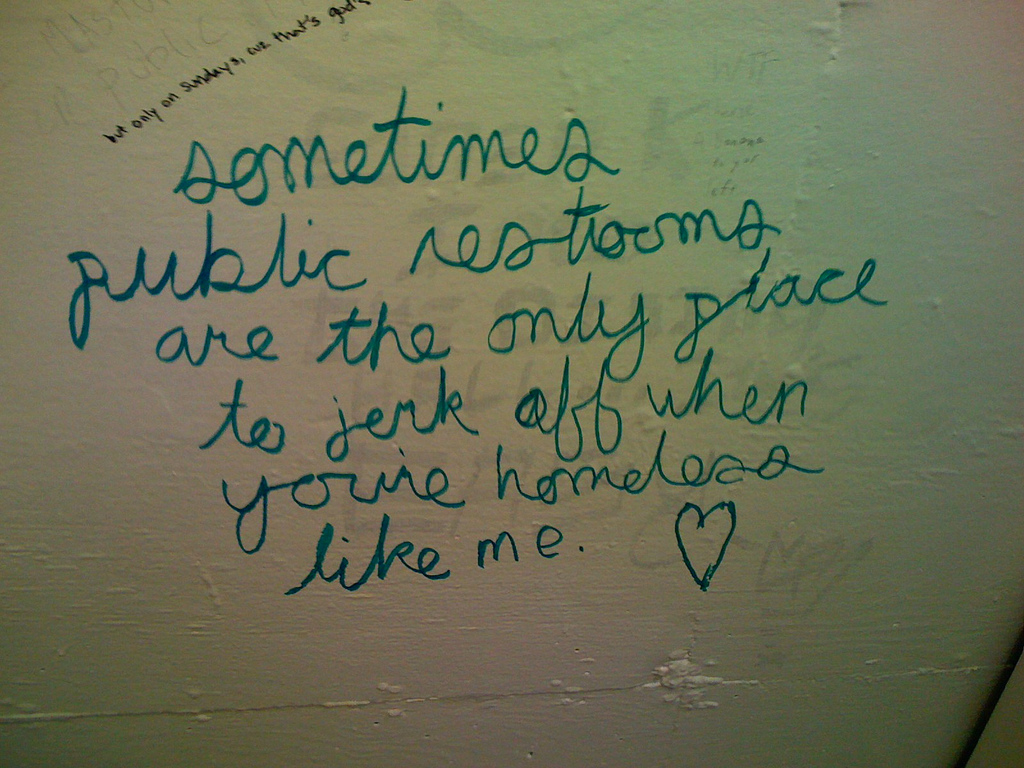 but only on sundays, cuz that's god's
sometimes
public restrooms
are the only place
to jerk off when
you're homeless
like me. ♡
WTF